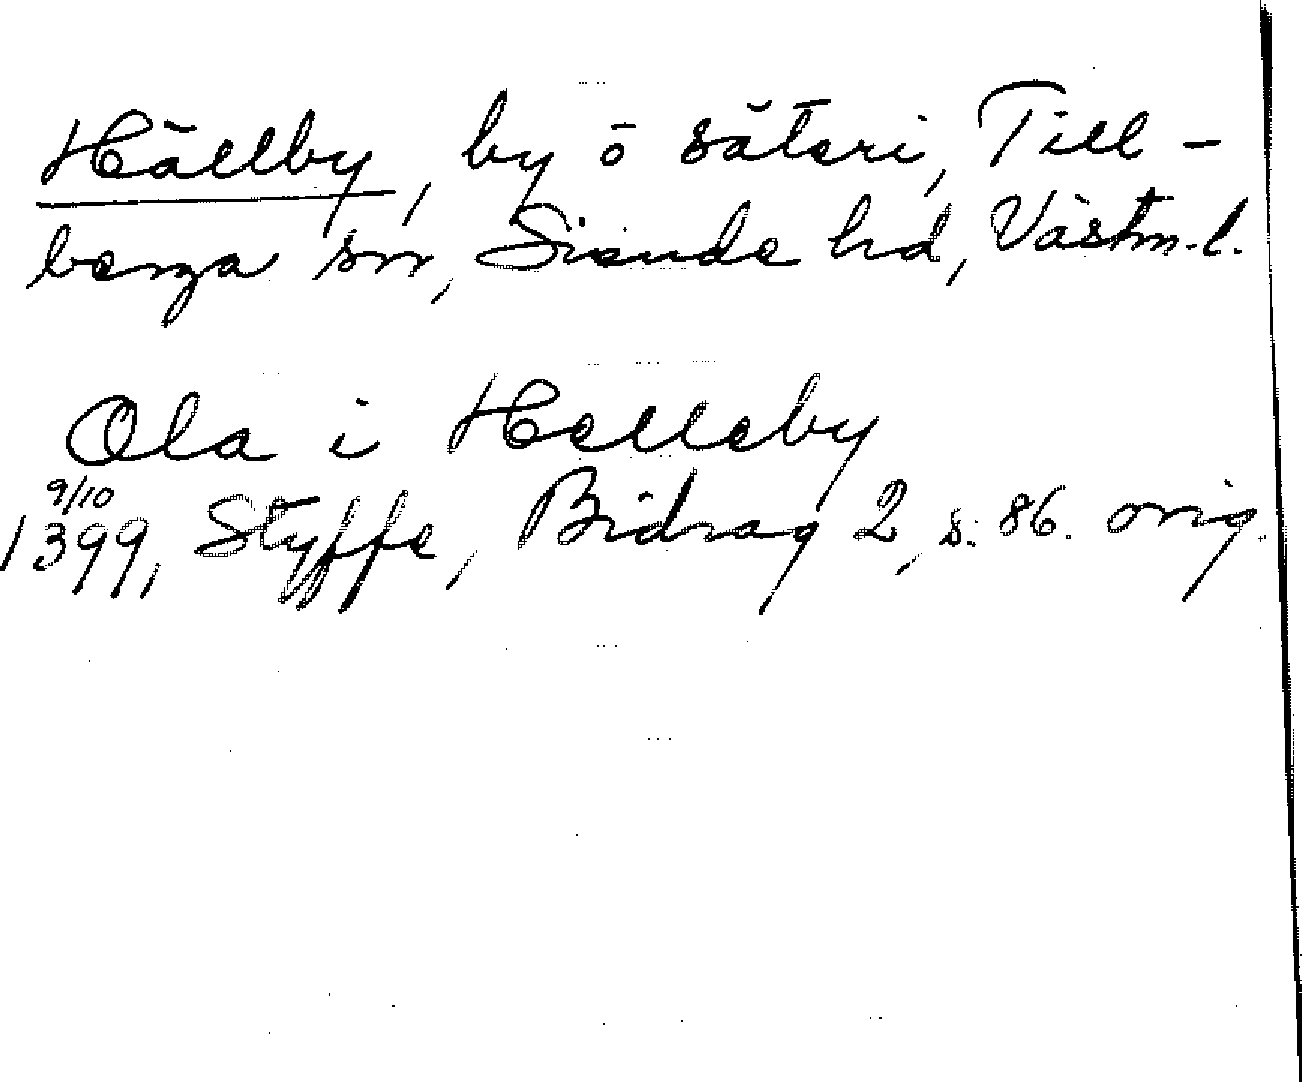 Hällby, by o säteri, Till-
berga sn, Siende hd, Västm. l.
Ola i Helleby
9/10
1399, Styffe, Bidrag 2, s. 86. orig.